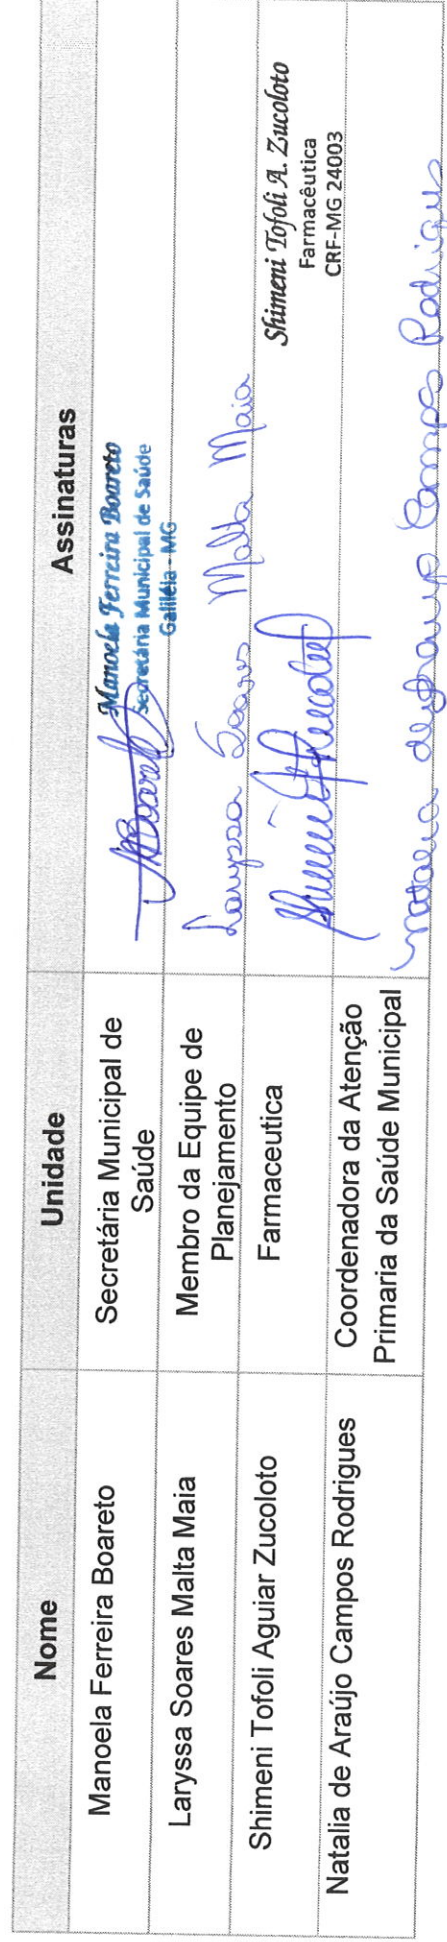 Nome Unidade Assinaturas
Manoela Ferreira Boareto
Secretária Municipal de
Saúde
MBoareto
Manoela Ferreira Boareto
Secretária Municipal de Saúde
Galiléia - MG
Laryssa Soares Malta Maia
Membro da Equipe de
Planejamento
Laryssa Soares Malta Maia
Shimeni Tofoli Aguiar Zucoloto
Farmaceutica
Shimeni Tofoli A. Zucoloto
Farmacêutica
CRF-MG 24003
Natalia de Araújo Campos Rodrigues
Coordenadora da Atenção
Primaria da Saúde Municipal
Natalia de Araujo Campos Rodrigues